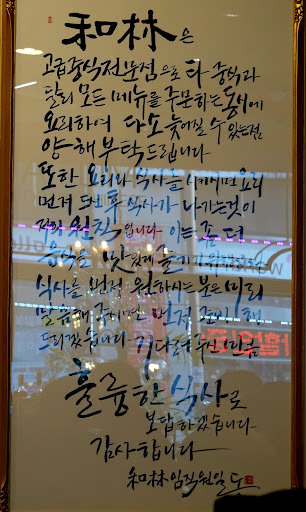 和林은
고급중식전문점으로 타 중식과
달리 모든 메뉴를 주문하는 동시에
요리하여 다소 늦어질 수 있는점
양해부탁드립니다
또한 요리와 식사를 시키시면 요리
먼저 드린 후 식사가 나가는것이
저희 원칙입니다 이는 좀 더
음식을 맛있게 즐기기 위함이며
식사를 먼저 원하시는 분은 미리
말씀해 주시면 먼저 준비해
드리겠습니다 기다려주신 만큼
훌륭한 식사로
보답하겠습니다
감사합니다
和林 임직원일동